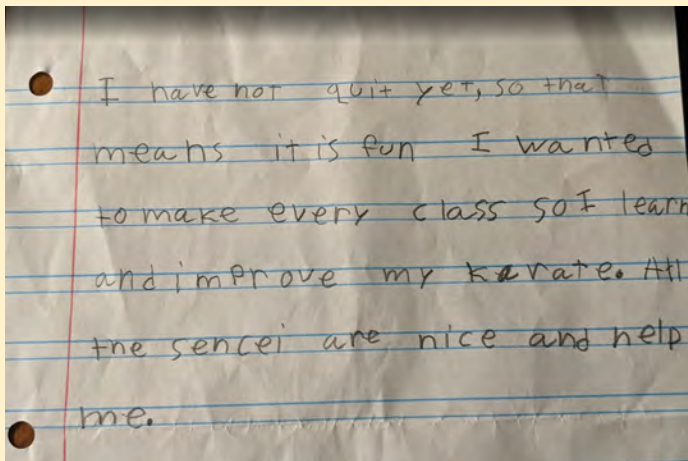 I have not quit yet, so that
means it is fun I wanted
to make every class so I learn
and improve my karate. All
the sencei are nice and help
me.